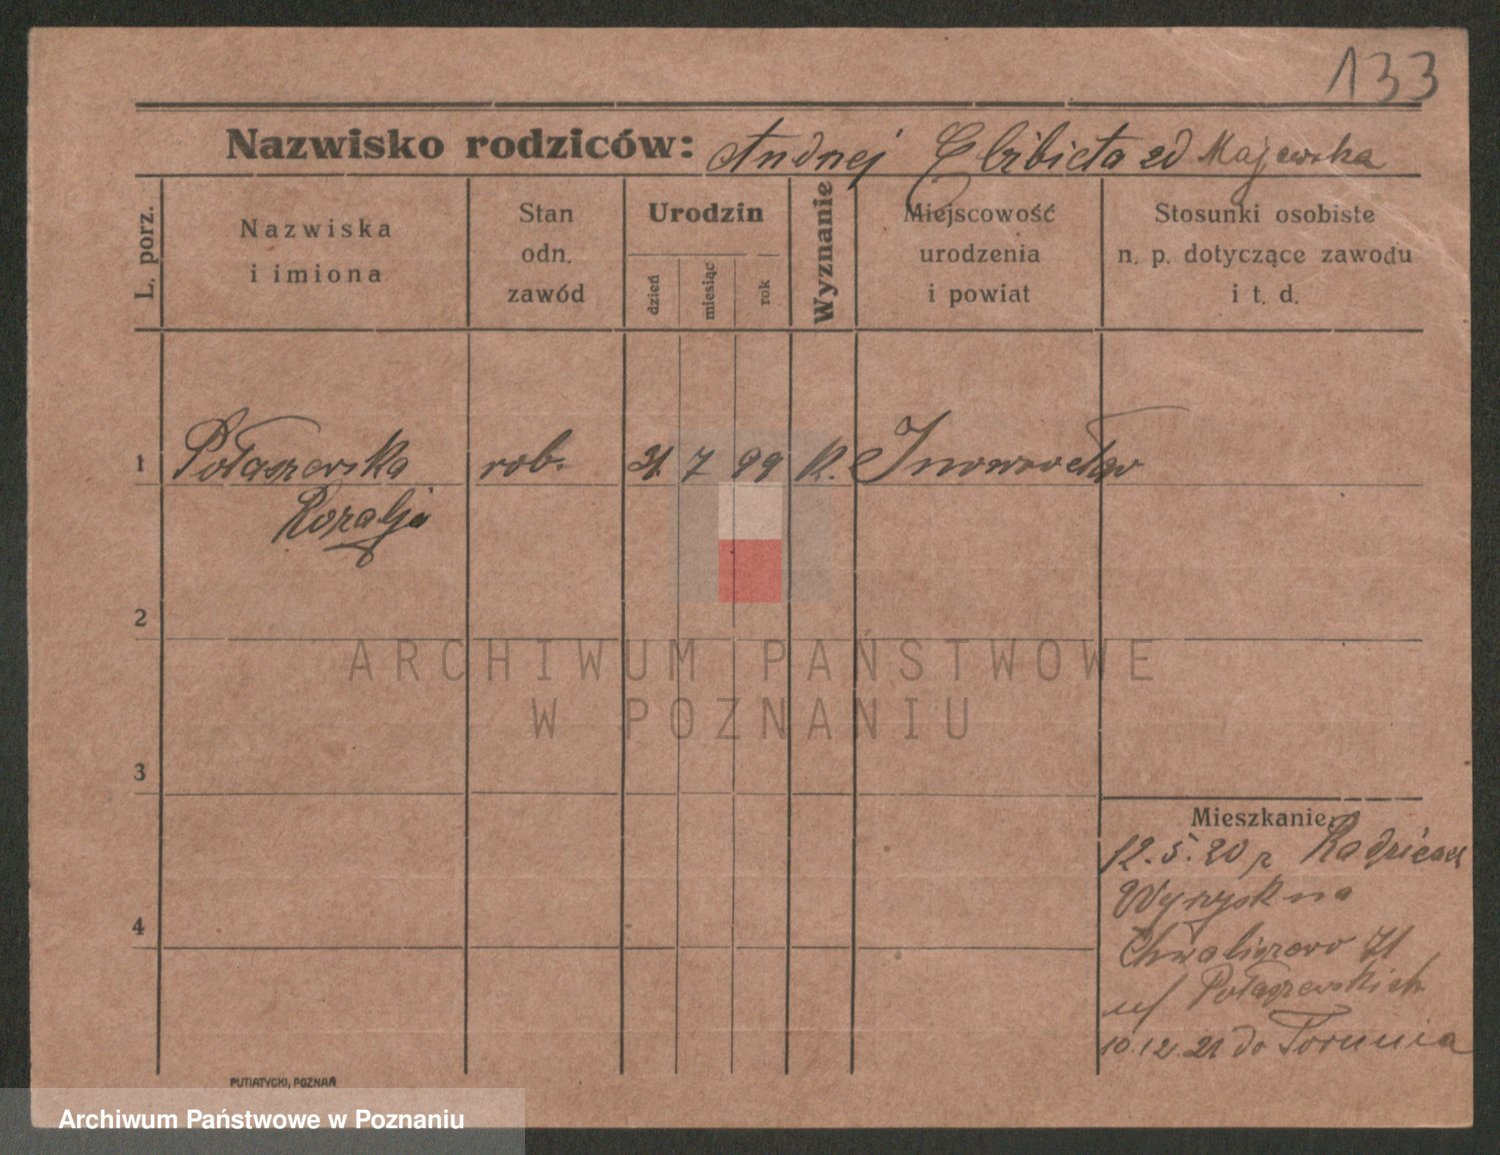 133
Nazwisko rodziców: Andrzej Elżbieta zd Majewska
L. porz.
Nazwiska
i imiona
Stan
odn.
zawód
Urodzin
dzień
miesiąc
rok
Wyznanie
Miejscowość
urodzenia
i powiat
Stosunki osobiste
n. p. dotyczące zawodu
i t. d.
1 Połaszewska rob. 31. 7 99 K. Inowrocław
Rozalja
2
3
4
Mieszkanie
12.5.20 z
Wyrzysk na
Chwaliszewo 71
u/ Połaszewskich
10.12.21 do Torunia
PUTIATYCKI, POZNAŃ
ARCHIWUM PAŃSTWOWE
W POZNANIU
Archiwum Państwowe w Poznaniu